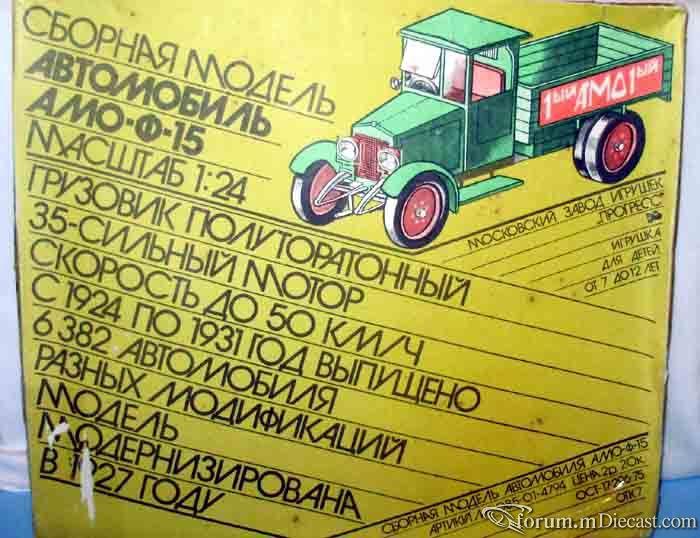 СБОРНАЯ МОДЕЛЬ
АВТОМОБИЛЬ
АМО-Ф-15
МАСШТАБ 1:24
ГРУЗОВИК ПОЛУТОРАТОННЫЙ
35-СИЛЬНЫЙ МОТОР
СКОРОСТЬ ДО 50 КМ/Ч
С 1924 ПО 1931 ГОД ВЫПИЩЕНО
6 382 АВТОМОБИЛЯ
РАЗНЫХ МОДИФИКАЦИЙ
МОДЕЛЬ
МОДЕРНИЗИРОВАНА
В 1927 ГОДУ
1ЫЙ АМО 1ЫЙ
МОСКОВСКИЙ ЗАВОД ИГРУШЕК
"ПРОГРЕСС"
ИГРУШКА
ДЛЯ ДЕТЕЙ
ОТ 7 ДО 12 ЛЕТ
СБОРНАЯ МОДЕЛЬ АВТОМОБИЛЯ АМО-Ф-15
01-4794 ЦЕНА 2р. 20к.
ОТК 7
forum.mDiecast.com